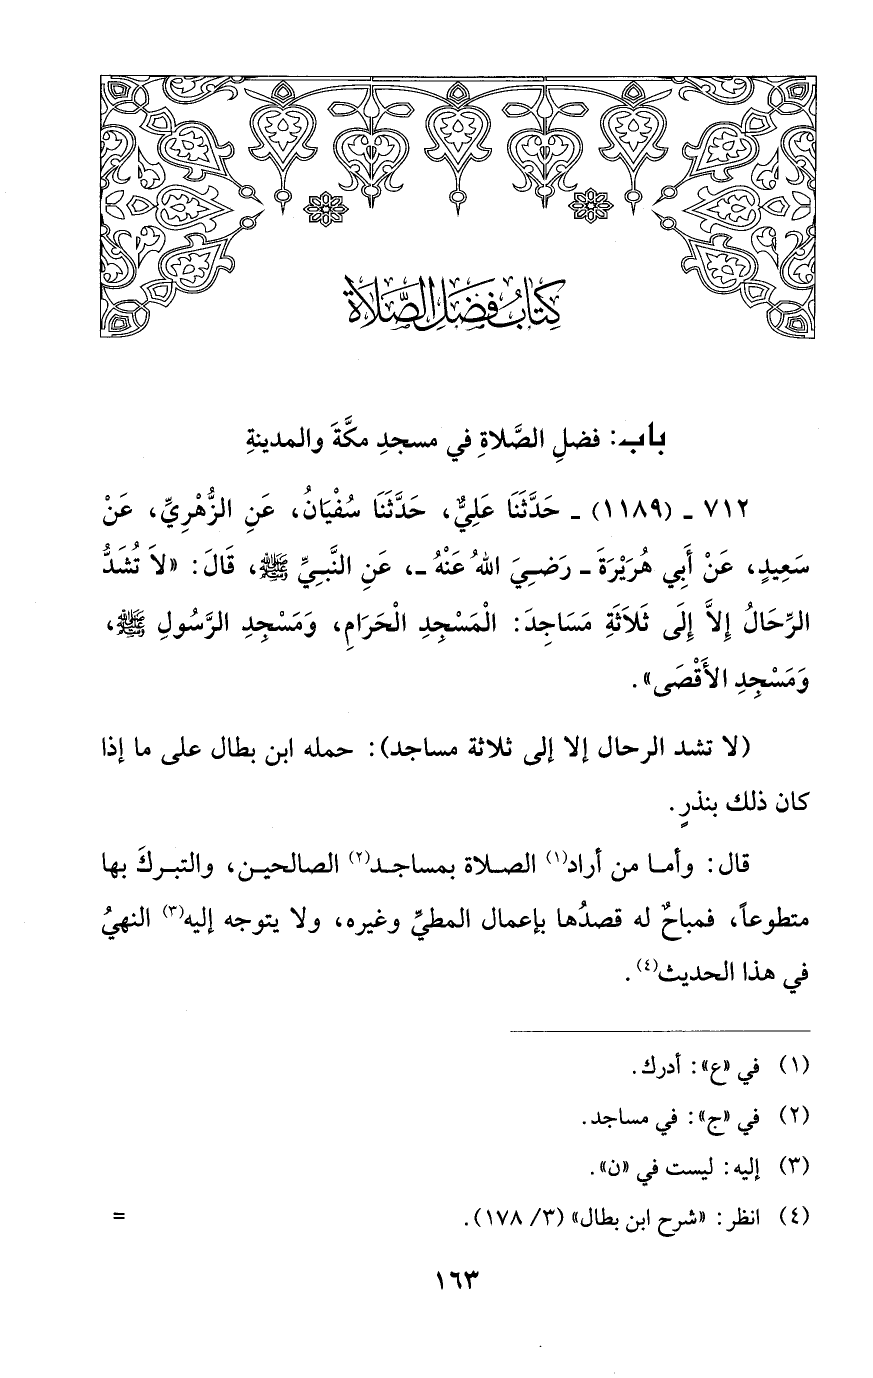 كِتَابُ فَضْلِ الصَّلَاةِ
باب: فضلِ الصَّلاةِ في مسجدِ مكَّةَ والمدينةِ
٧١٢ ـ (١١٨٩) ـ حَدَّثَنَا عَلِيٌّ، حَدَّثَنَا سُفْيَانُ، عَنِ الزُّهْرِيِّ، عَنْ
سَعِيدٍ، عَنْ أَبِي هُرَيْرَةَ ـ رَضِيَ اللهُ عَنْهُ ـ، عَنِ النَّبِيِّ ﷺ، قَالَ: «لاَ تُشَدُّ
الرِّحَالُ إِلاَّ إِلَى ثَلاَثَةِ مَسَاجِدَ: الْمَسْجِدِ الْحَرَامِ، وَمَسْجِدِ الرَّسُولِ ﷺ،
وَمَسْجِدِ الأَقْصَى».
(لا تشد الرحال إلا إلى ثلاثة مساجد): حمله ابن بطال على ما إذا
كان ذلك بنذرٍ.
قال: وأما من أراد(١) الصلاة بمساجد(٢) الصالحين، والتبركَ بها
متطوعاً، فمباحٌ له قصدُها بإعمال المطيِّ وغيره، ولا يتوجه إليه(٣) النهيُ
في هذا الحديث(٤).
(١) في «ع»: أدرك.
(٢) في «ج»: في مساجد.
(٣) إليه: ليست في «ن».
(٤) انظر: «شرح ابن بطال» (٣/ ١٧٨). =
١٦٣